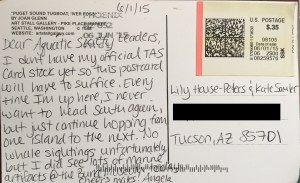 "PUGET SOUND TUGBOAT, WEB EDGE"
BY JOAN GLENN
ART STALL GALLERY - PIKE PLACE
SEATTLE, WASHINGTON
artstallgallery.com
PHOENIX
6/1/15
Dear Aquatic Safety Leaders,
I don't have my official TAS
Card stock yet so this postcard
will have to suffice. Every
time I'm up here, I never
want to head South again,
but just continue hopping from
one island to the next. No
whale sightings unfortunately
but I did see lots of marine
artifacts @ the Burke
Cheers mates! Angela
U.S. POSTAGE
$.35
Lily House-Peters & Kate
Tucson, AZ 85701